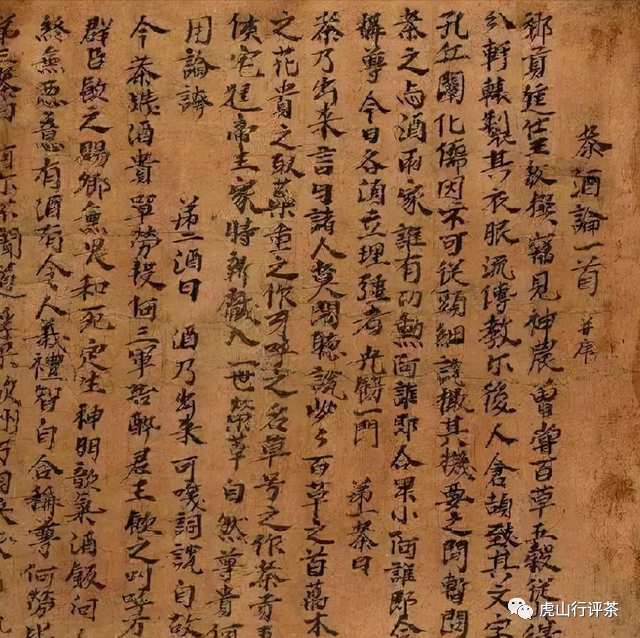 茶酒論一首 并序
鄉貢進士王敷撰竊見神農曾嘗百草五穀從
分軒轅製其衣服流傳教示後人倉頡致其文字
孔丘闡化儒因不可從頭細說撮其樞要之間暫問
茶之与酒兩家誰有功勳阿誰即合卑小阿誰即合
稱尊今日各須立理強者光飾一門 第一茶曰
茶乃出來言曰諸人莫鬧聽說些々百草之首萬木
之花貴之取蘂重之作牙呼之名草号之作茶貢五
侯宅進帝王家時新獻入一世榮華自然尊貴何
用論誇 第二酒曰 酒乃出來可笑詞說自古
今茶賤酒貴單勞投河三軍告醉君王飲之叫呼万
群臣飲之賜卿無畏和死定生神明歆氣酒飯向
終無惡意有酒有令人義禮智自合稱尊何勞比
第三茶曰 阿你不聞道
虎山行评茶